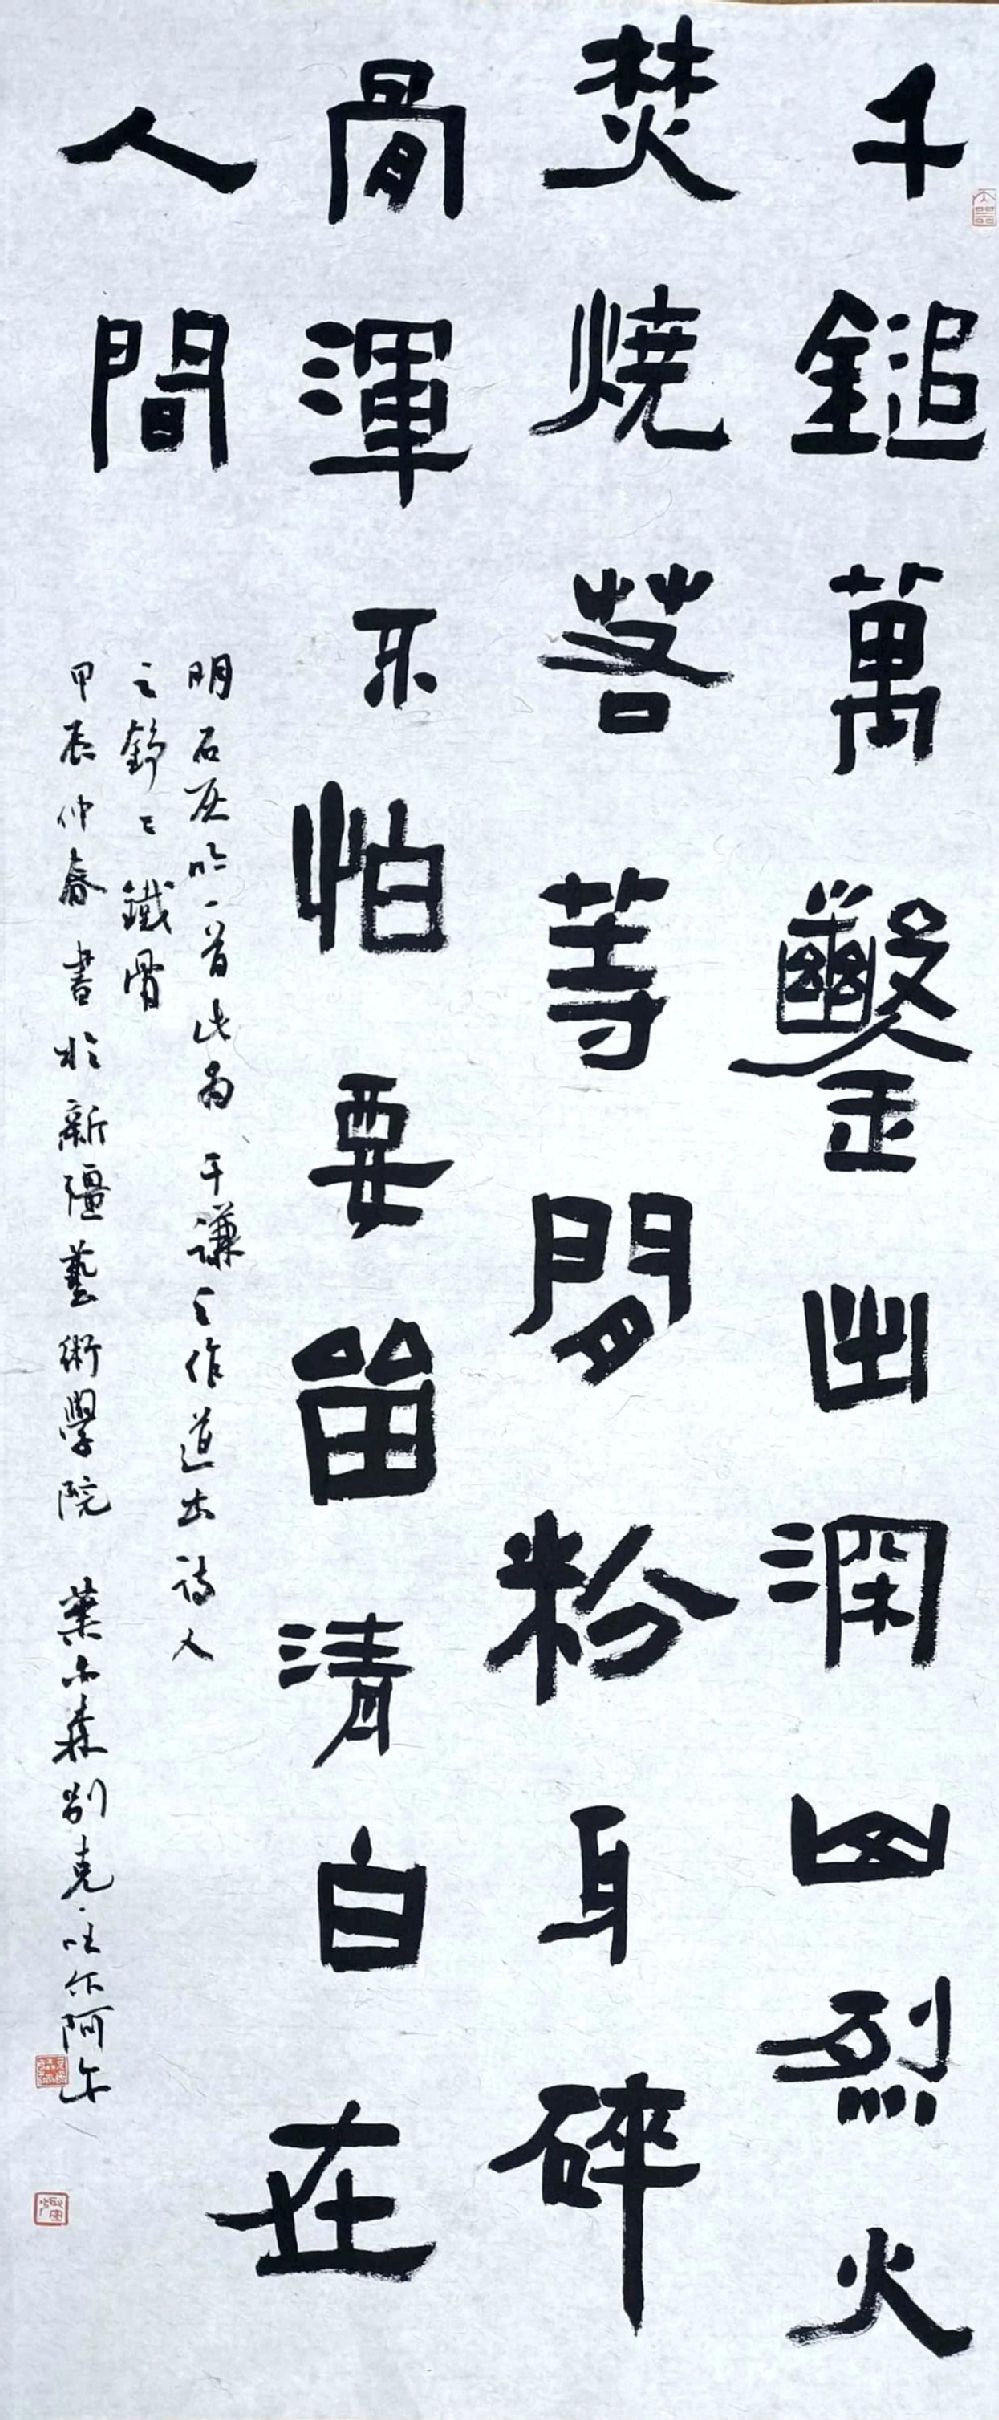 千鎚萬鑿出深山烈火
焚燒若等閒粉身碎
骨渾不怕要留清白在
人間
明石灰吟一首此為于謙之作道出詩人
之錚々鐵骨
甲辰仲春書於新疆藝術學院 葉尔森別克·吐尔阿尔